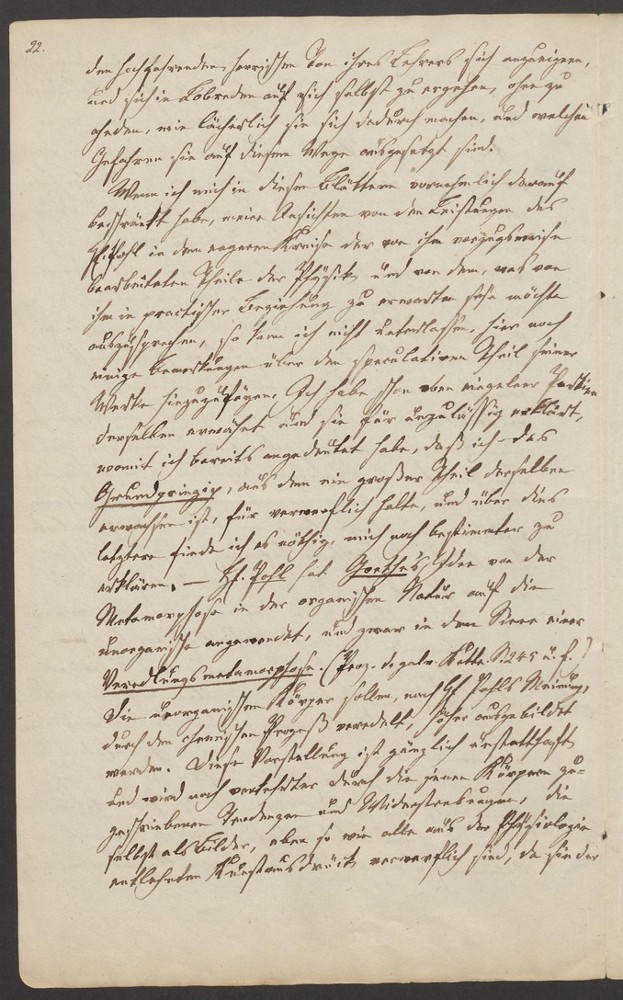 22.
den hochfahrenden herrischen Ton ihres Lehrers sich anzueignen,
und sich in Lobreden auf sich selbst zu ergehen, ohne zu
ahnden, wie lächerlich sie sich dadurch machen, und welchen
Gefahren sie auf diesem Wege ausgesetzt sind.
Wenn ich mich in diesen Blättern vornehmlich darauf
beschränkt habe, meine Ansichten von den Leistungen des
H. Pohl in dem engeren Kreise der von ihm vorzugsweise
bearbeiteten Theile der Physik und von dem, was von
ihm in practischer Beziehung zu erwarten sehn möchte
auszusprechen, so kann ich nicht unterlassen, hier noch
einige Bemerkungen über den speculativen Theil seiner
Werke hinzuzufügen. Ich habe schon oben einzelner Partien
derselben erwähnt und sie für unzulässig erklärt,
womit ich bereits angedeutet habe, daß ich das
Grundprinzip, aus dem ein großer Theil derselben
erwachsen ist, für verwerflich halte, und über dies
letztere finde ich es nöthig, mich noch bestimmter zu
erklären. — H. Pohl hat Goethe's Idee von der
Metamorphose in der organischen Natur auf die
unorganische angewendet, und zwar in dem Sinne einer
Veredlungsmetamorphose. (Proz. d. galv. Kette S. 245 u. f.)
Die unorganischen Körper sollen, nach H. Pohls Meinung,
durch den chemischen Prozeß veredelt, höher ausgebildet
werden. Diese Vorstellung ist gänzlich unstatthaft,
und wird noch verkehrter durch die jenen Körpern zu-
geschriebenen Tendenzen und Widerstrebungen, die
selbst als Bilder, eben so wie alle aus der Physiologie
entlehnten Kunstausdrücke verwerflich sind, da sie der